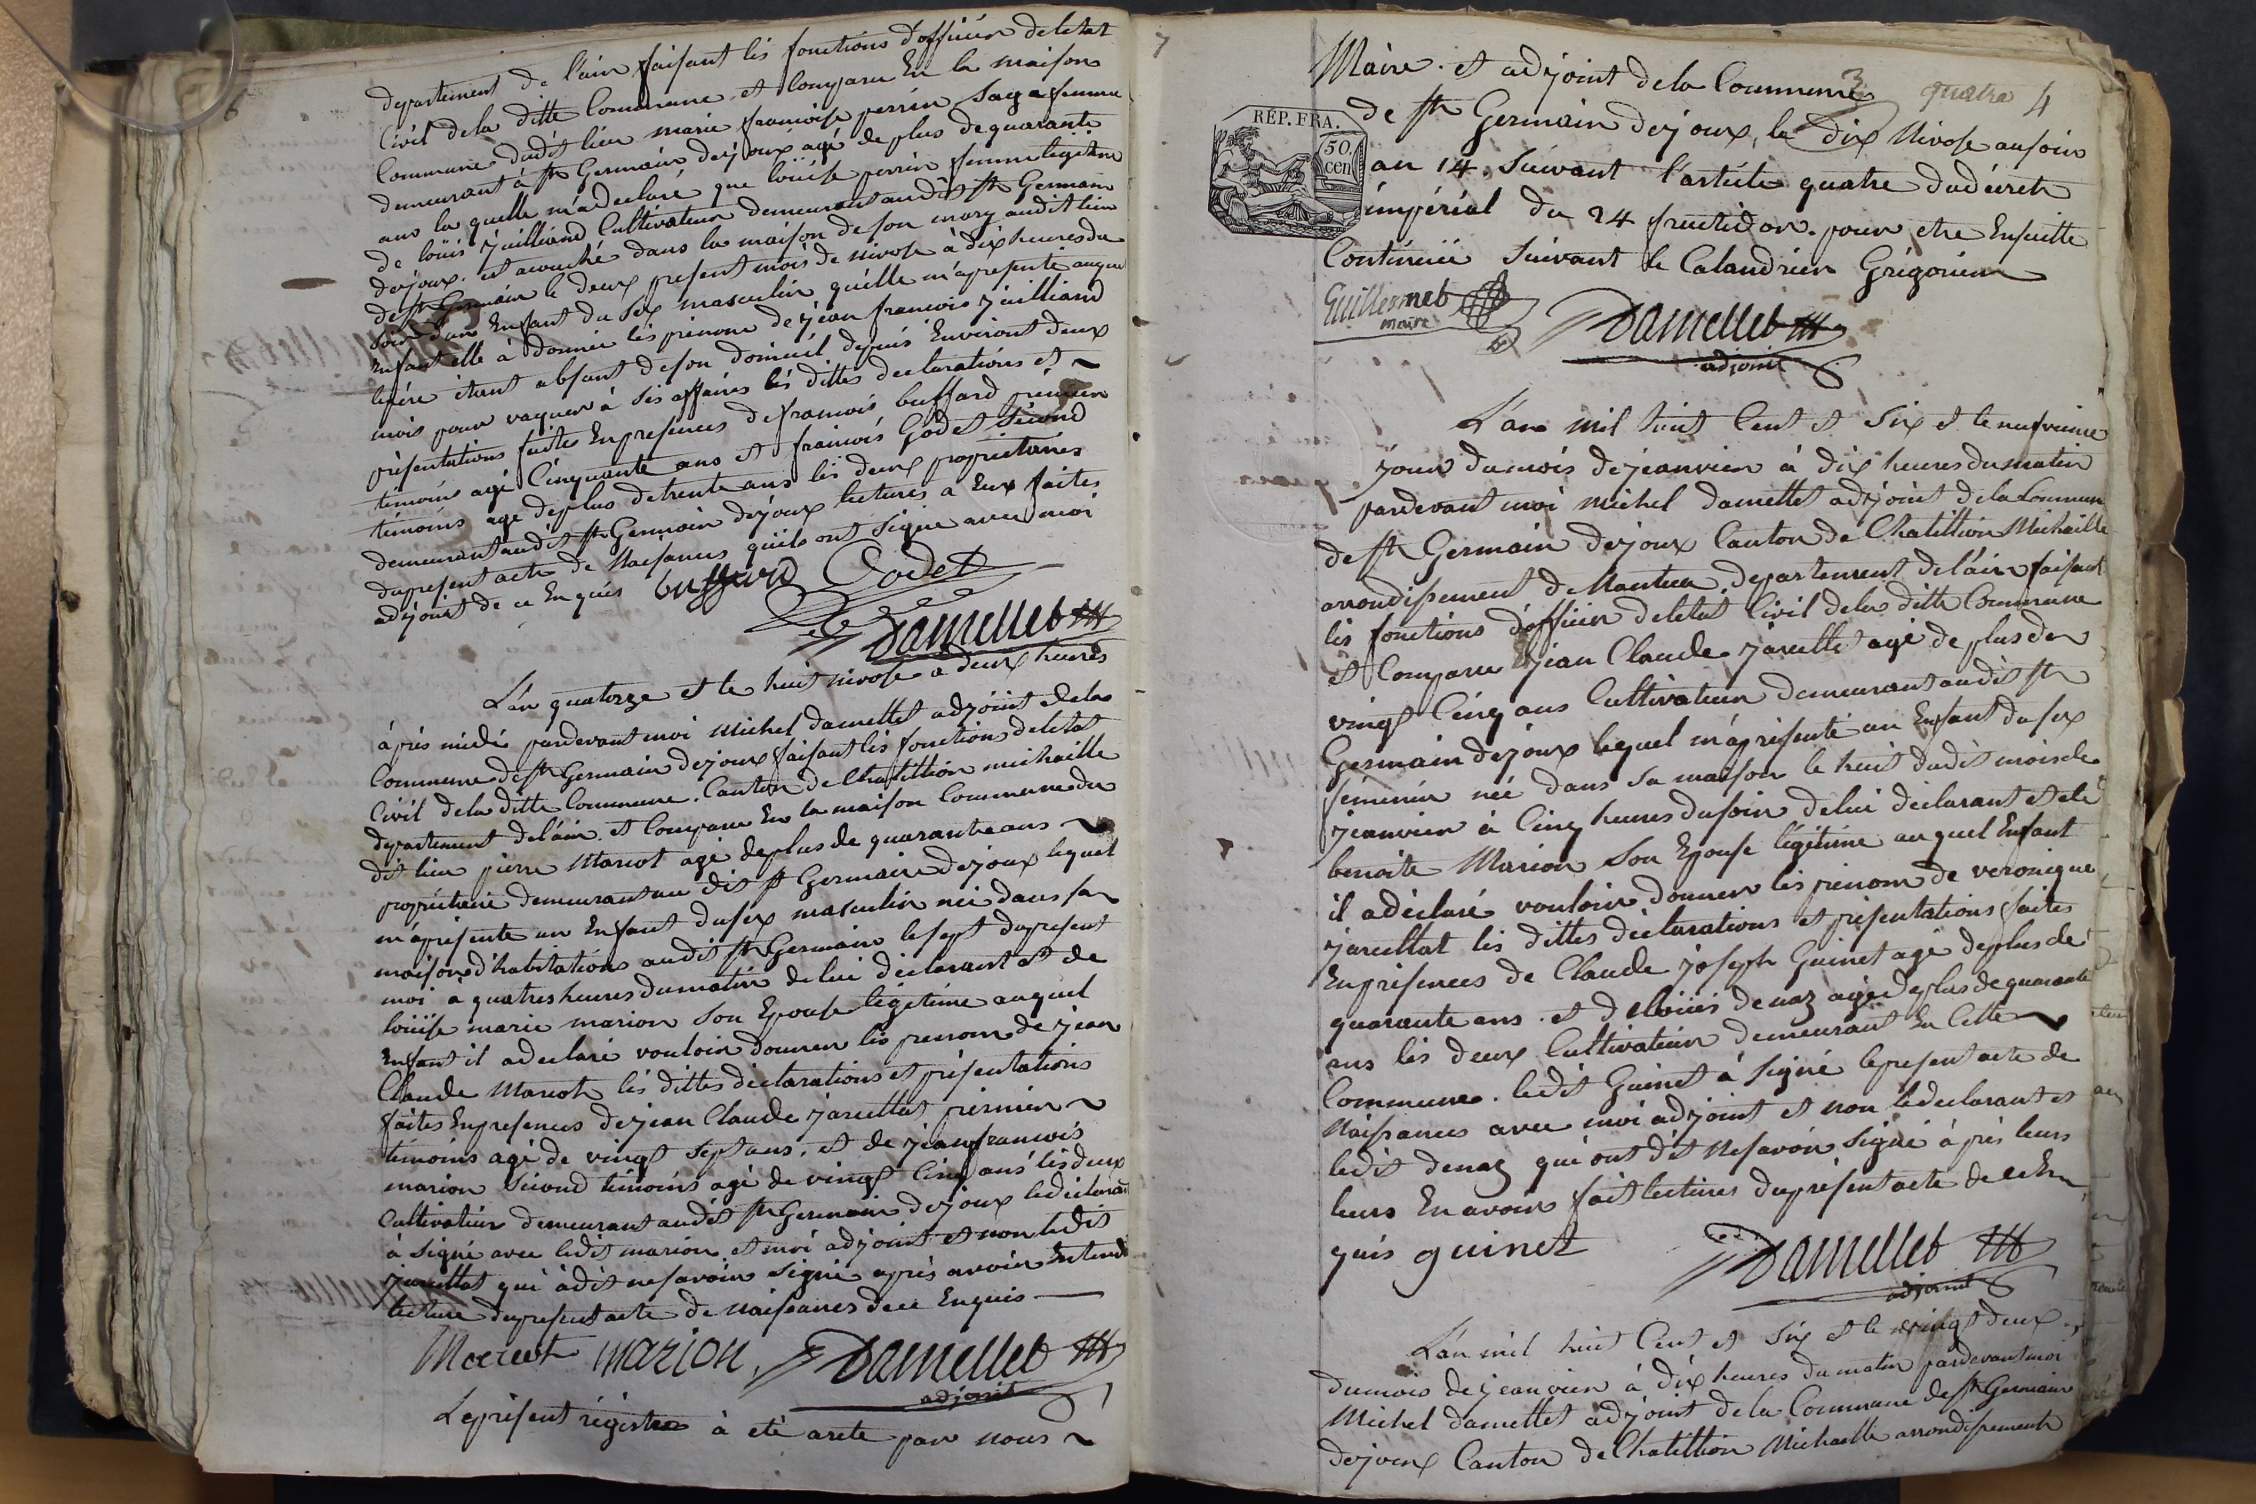 6
departement de l'ain faisant lés fonctions d'officier de letat
Civil de la ditte Commune et Comparu En la maison
Commune dudit lieu marie francoise perrin Sage femme
demeurant à st Germain dejoux agé de plus de quarante
ans la quelle m'a declaré que loüise perrin femme legitime
de loüis juilliand Cultivateur demeurant audit st Germain
dejoux est acouché dans la maison de son mary audit lieu
de st Germain le deux present mois de nivose à dix heures du
soir d'un Enfant du Sex masculin quélle m'apresenté auquel
Enfant elle à donnée lés prenom de jean francois juilliand
lepére étant absant de son domicil depuis Environt deux
mois pour vaquer à sés affaires lés dittes declarations et
présentations faites En presences de francois buffard premier
témoins agé Cinquante ans et francois Godet Second
temoins agé deplus de trente ans lés deux proprietaires
demeurant audit st Germain dejoux lectures a Eux faites
dupresent acte de Naissances quils ont Signé avec moi
adjoint de ce Enquis buffard Godet
Damellet
L'án quatorze et le huit nivose a deux heures
àprés midi pardevant moi Michel damellet adjoint dela
Commune de st Germain dejoux faisant lés fonctions deletat
Civil dela ditte Commune Canton de Chatillion michaille
departement del'ain et Comparu En la maison Commune du
dit lieu pierre Marcot agé deplus de quarante ans
propriétaire demeurant au dit st Germain dejoux lequel
m'apresenté un Enfant dusex masculin née dans sa
maison d'habitations audit st Germain le sept dupresent
moi à quatres heures dumatin de lui declarant et de
loüise marie marion son Epouse légitime auquel
Enfant il adeclaré vouloir donner lés prenom de jean
Claude Marcot lés dittes déclarations et présentations
faites Enpresences dejean Claude jarcellat premier
témoins agé de vingt sept ans et de jean francois
marion Sécond témoins agé de vingt Cinq ans lés deux
Cultivateur demeurant audit st Germain dejoux ledeclarant
à Signé avec ledit marion et moi adjoint et non ledit
jarcellat qui àdit nesavoir signé aprés avoir Entendu
lecture dupresent acte de naissances dece Enquis
Marcot marion Damellet
adjoint
Leprésent régistre à eté areté par nous
7
Maire et adjoint dela Commune
3 quatre 4
RÉP. FRA.
50
cen
de st Germain dejoux, le dix Nivose ausoir
an 14 Suivant l'article quatre dudécret
impérial du 24 fructidor pour etre Ensuitte
Continüié suivant le Calandrier Grégorien
Guillermet
maire
Damellet
adjoint
L'an mil huit Cent et Six et le neufvieme
jour dumois dejeanvier à dix heures dumatin
pardevant moi Michel damellet adjoint dela Commune
de st Germain dejoux Canton de Chatillion Michaille
arrondissement de Nantua departement del'ain faisant
lés fonctions d'officier deletat Civil dela ditte Commune
et Comparu jean Claude jarcellet agé de plus de
vingt Cinq ans Cultivateur demeurant audit st
Germain dejoux lequel m'apresenté un Enfant du sex
féminin née dans sa maison le huit dudit mois de
jeanvier à Cinq heures dusoir delui declarant et de
benoite Marion Son Epouse légitime auquel Enfant
il adéclaré vouloir donner lés prenom de veronique
jarcellat lés dittes déclarations et présentations faites
En présences de Claude joseph Guinet agé deplus de
quarante ans et deloüis denaz agé deplus de quarante
ans lés deux Cultivateur demeurant En Cette
Commune ledit Guinet à Signé lepresent acte de
Naissances avec moi adjoint et non ledeclarant et
ledit denaz qui ont dit Nesavoir Signé àprés leurs
leurs En avoir fait lectures duprésent acte de ce En
quis guinet Damellet
adjoint
L'an mil huit Cent et Six et le vingt deux
dumois dejeanvier à dix heures du matin pardevant moi
Michel damellet adjoint de la Commune de st Germain
dejoux Canton de Chatillion Michaille arrondissement